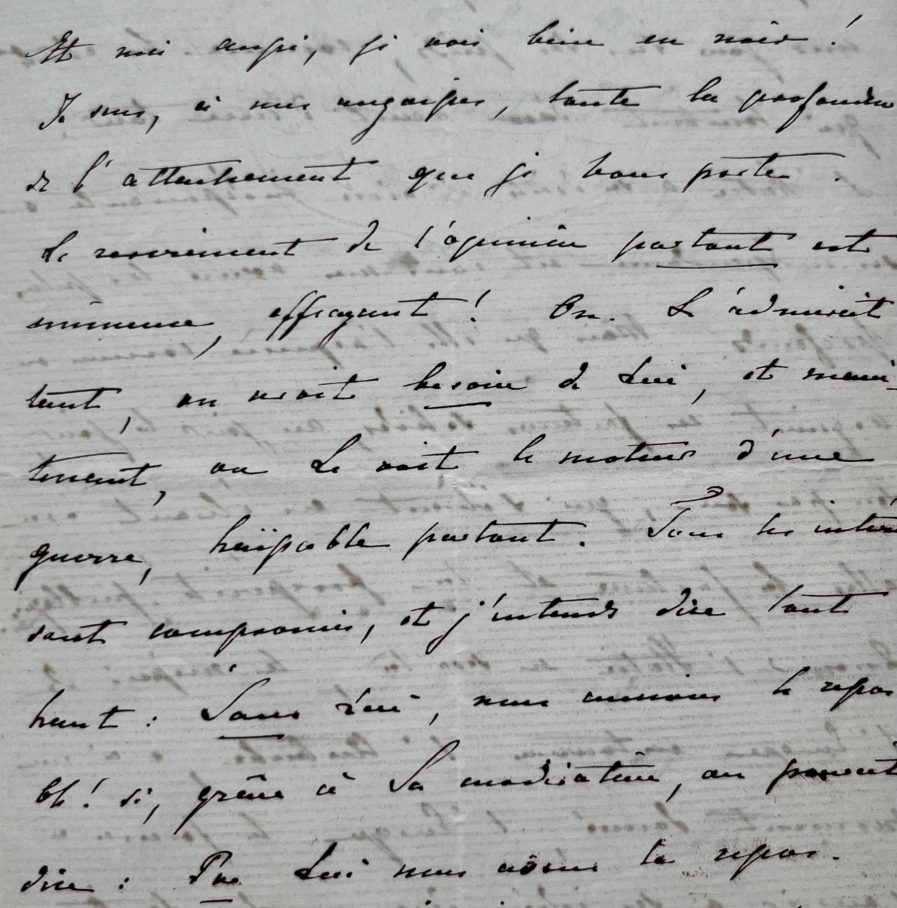 Et moi aussi, je vois bien en noir !
Je sens, à mes angoisses, toute la profondeur
de l'attachement que je vous porte.
Le revirement de l'opinion partout est
immense, effrayant ! On L'admirait
tant, on avait besoin de Lui, et main-
tenant, on Le voit le moteur d'une
guerre, haïssable partout. Tous les intérêts
sont compromis, et j'entends dire tout
haut : Sans Lui, nous aurions le repos
Eh ! si, grâce à Sa médiation, on pouvait
dire : Par Lui nous avons le repos.